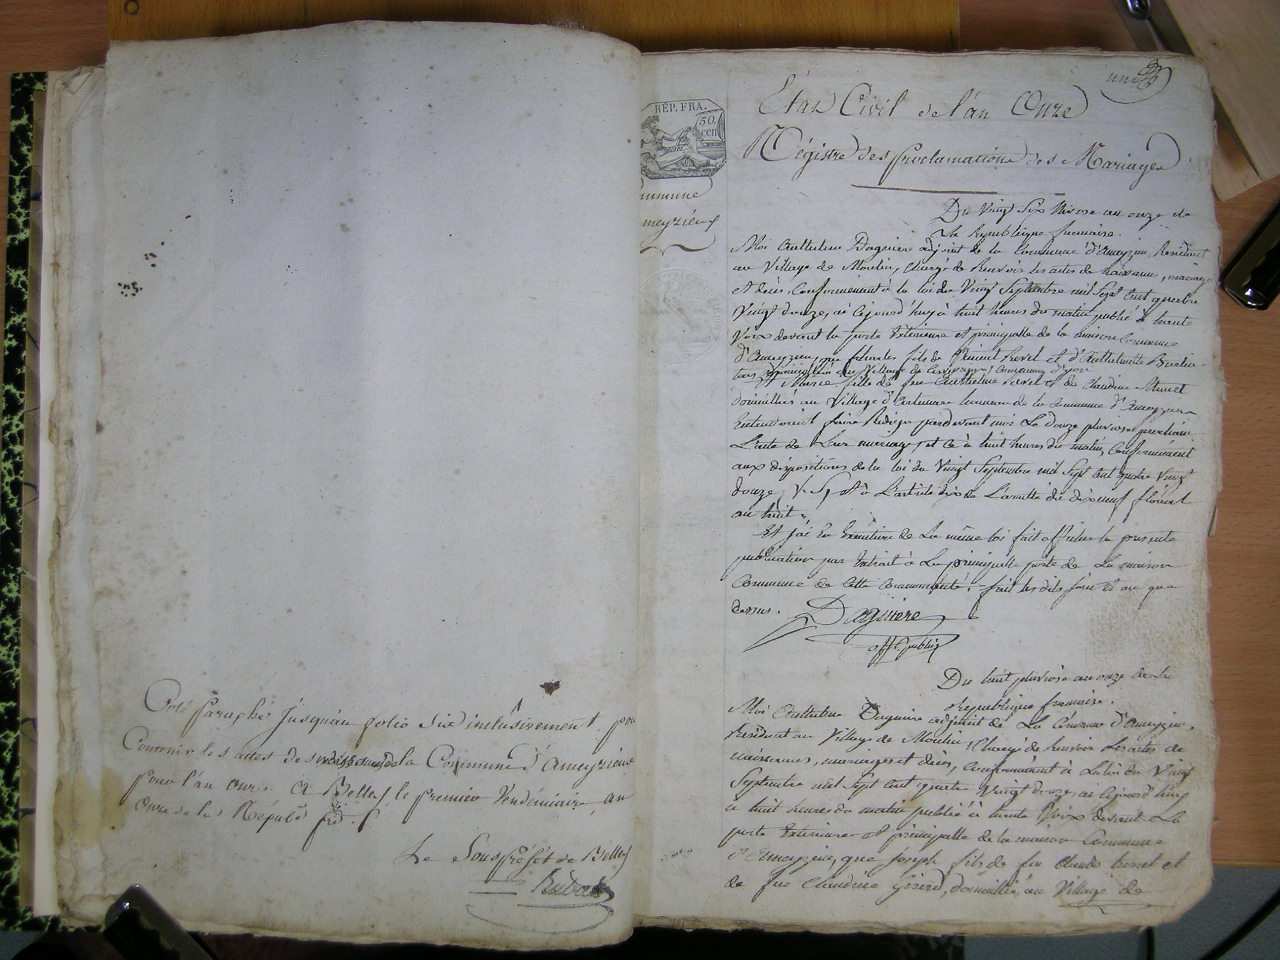 Coté Paraphé jusqu'au folio six inclusivement pour
Contenir les actes de la Commune d'Ameyzieu
pour l'an onze. A Belley le premier Vendémiaire an
onze de la Répub. fr.
Le Sous Préfet de Belley
RÉP. FRA.
50.
cen
Etat Civil de l'an Onze
Régistre des Proclamations des Mariages
Du Vingt Six Nivose an onze de
la République francaise.
Moi Anthelme Daguiere adjoint de la Commune d'Ameyzieu, Residant
au Village de Moulin, chargé de Recevoir les actes de naissance, mariages
et deces, Conformement à la loi du Vingt Septembre mil Sept Cent quatre
Vingt douze, ai cejourd'huy à huit heures du matin publié à haute
Voix devant la porte Exterieure et principalle de la maison Commune
d'Ameyzieu, que fils de et d'Anthelmette
au Village de
Marie fille de feu et de Claudine
domicilliés au Village d' de la commune d'Ameyzieu
faire Rediger pardevant moi Le Douze pluviose prochain
L'acte de Leur mariage, et ce à huit heures du matin, Conformement
aux dispositions de la loi du Vingt Septembre mil Sept Cent quatre Vingt
douze, et à L'article de L'arrêté du dix neuf floreal
an huit.
Et j'ai en Execution de La même loi fait afficher la presente
publication par Extrait à La principalle porte de La maison
Commune de Cette Commune. fait les dits jour et an que
dessus. Daguiere
off. public
Du huit pluviose an onze de la
République francaise.
Moi Anthelme Daguiere adjoint de La Commune d'Ameyzieu,
Residant au Village de Moulin, Chargé de Recevoir Les actes de
naissances, mariages et deces, Conformement à La loi du Vingt
Septembre mil Sept Cent quatre Vingt douze, ai cejourd'huy
à huit heures du matin publié à haute Voix devant La
porte Exterieure et principalle de la maison Commune
d'Ameyzieu, que joseph fils de feu Claude et
de feue Claudine Girerd, domicillié au Village de